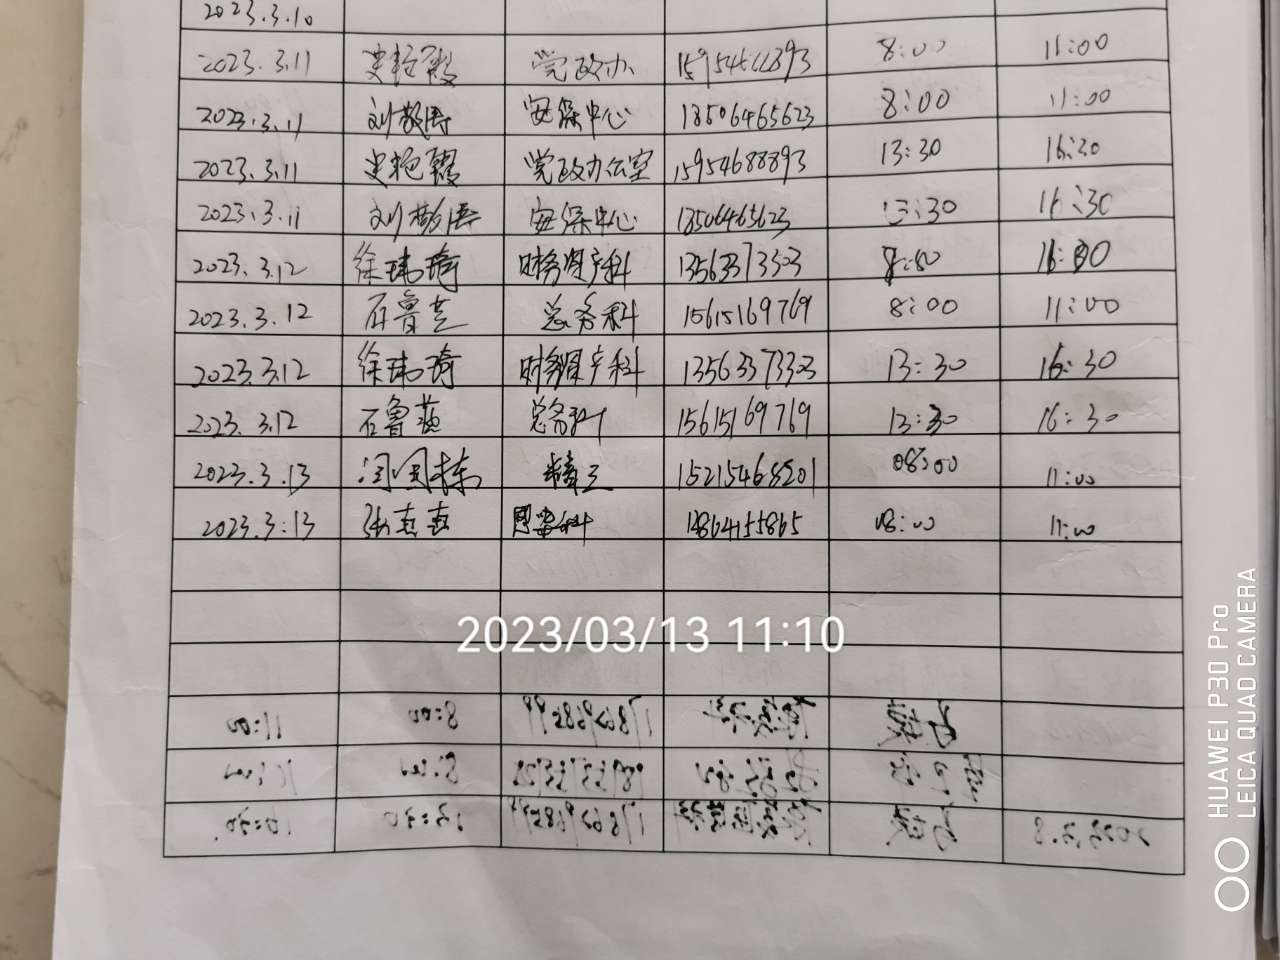 2023.3.10
2023.3.11 党政办 8:00 11:00
2023.3.11 刘敬涛 安保中心 13506465623 8:00 11:00
2023.3.11 史艳霞 党政办公室 15954688893 13:30 16:30
2023.3.11 刘敬涛 安保中心 13506465623 13:30 16:30
2023.3.12 徐玮琦 财务资产科 13563373303 16:30
2023.3.12 石鲁燕 总务科 15615169769 8:00 11:00
2023.3.12 徐玮琦 财务资产科 13563373303 13:30 16:30
2023.3.12 石鲁燕 总务科 15615169769 13:30 16:30
2023.3.13 闫闰栋 15215468201 08:00 11:00
2023.3.13 08:00 11:00
2023/03/13 11:10
11:00 8:00 17862968599
8:00
13:30 17862968599 2023.3.8
HUAWEI P30 Pro
LEICA QUAD CAMERA